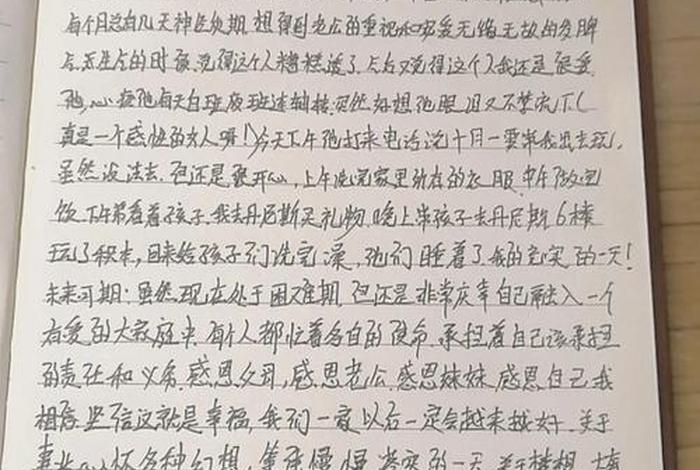 每个月总有几天神经质期，想得到老公的重视和宠爱无缘无故的发脾
气，在生气的时候，觉得这个人糟糕透了，气后又觉得这个人我还是很爱
他，心疼他每天白班夜班连轴转，突然好想他眼泪又不禁流下（
真是一个感性的女人啊！）今天下午他打来电话说十月一要带我出去玩，
虽然没法去，但还是很开心，上午洗完家里所有的衣服，中午做完
饭，下午带着孩子，我去丹尼斯买礼物，晚上带孩子去丹尼斯6楼
玩了积木，回来给孩子们洗完澡，他们睡着了，我的充实的一天！
未来可期：虽然现在处于困难期，但还是非常庆幸自己融入一个
有爱的大家庭中，每个人都忙着各自的使命，承担着自己该承担
的责任和义务，感恩父母，感恩老公，感恩妹妹，感恩自己，我
相信，坚信这就是幸福，我们一家以后一定会越来越好，关于
事业，心怀各种幻想，